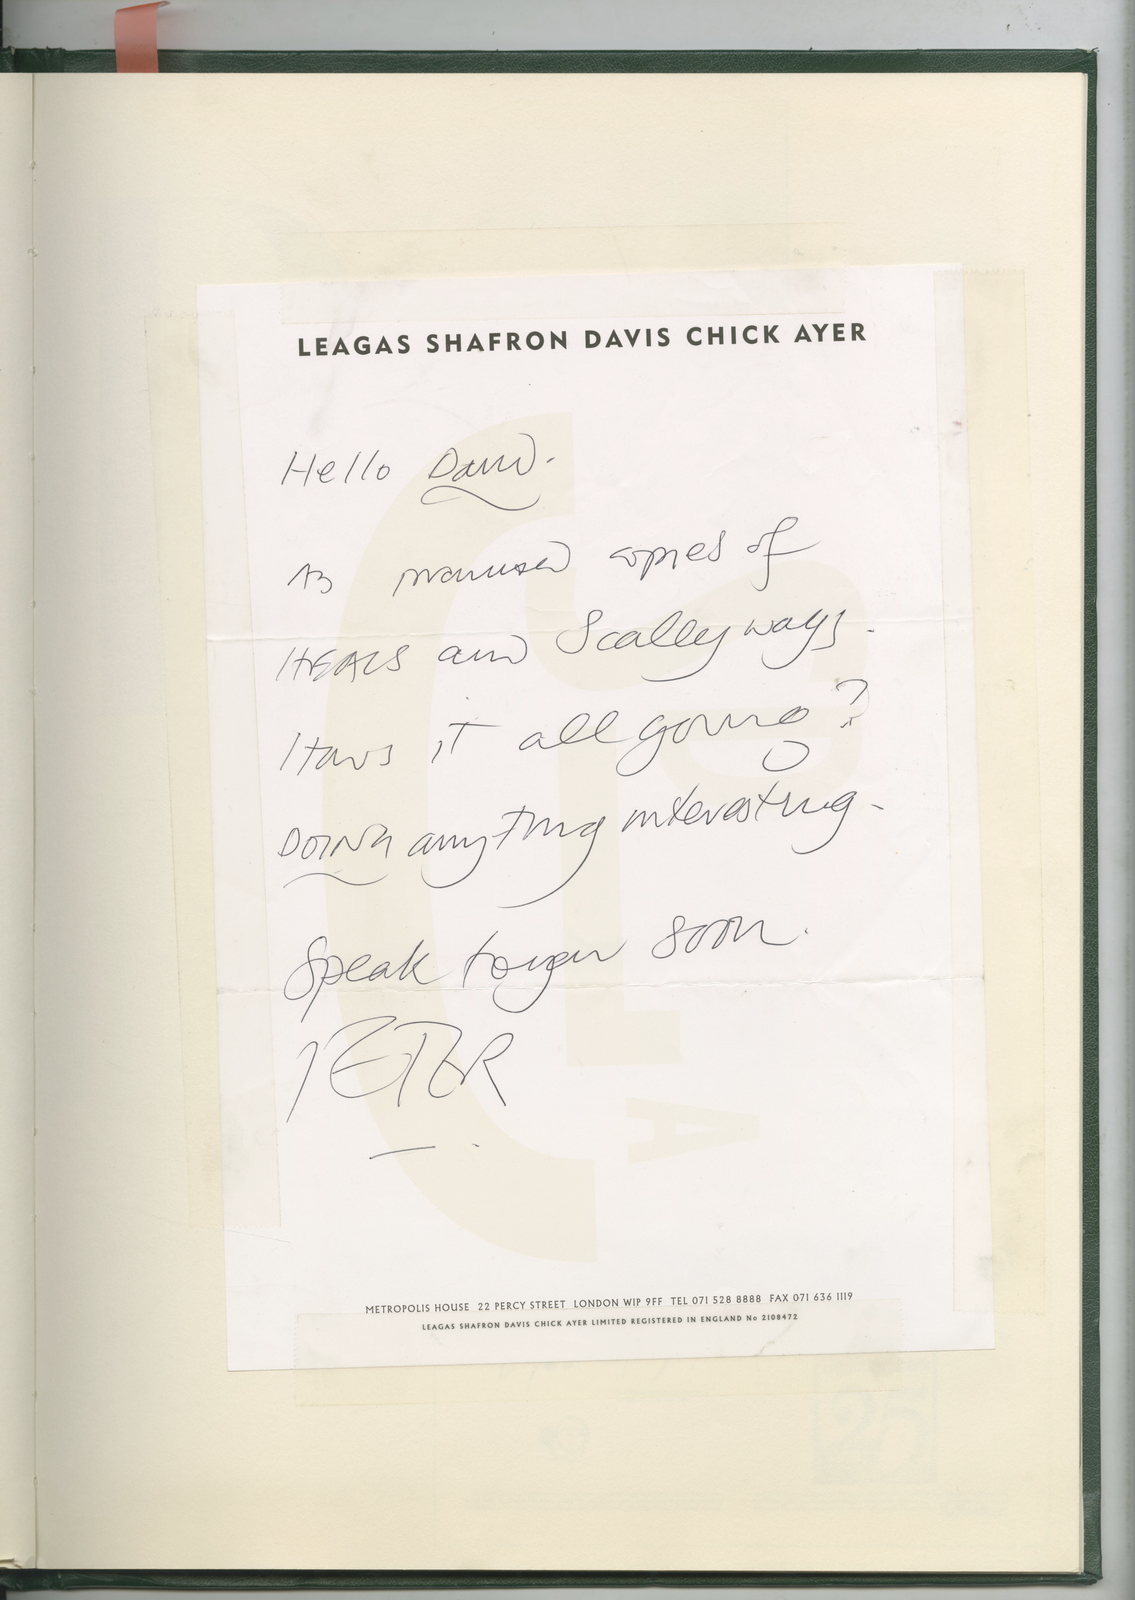 LEAGAS SHAFRON DAVIS CHICK AYER
Hello David.
As promised copies of
HEALS and Scallyways.
Hows it all going?
DOING anything interesting.
Speak to you soon.
PETER
METROPOLIS HOUSE 22 PERCY STREET LONDON W1P 9FF TEL 071 528 8888 FAX 071 636 1119
LEAGAS SHAFRON DAVIS CHICK AYER LIMITED REGISTERED IN ENGLAND No 2108472